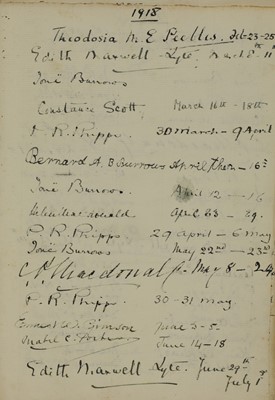 1918
Theodosia M. E. Feb. 23-28
Edith Maxwell Lyte, March 8th 11th
Joné Burrows
Constance Scott, March 16th - 18th
P. R. Phipps. 30 March - 9 April
Bernard A. B. Burrows April 7th - 16th
Joné Burrows. April 12 - 16
April 23 - 29.
P. R. Phipps. 29 April - 6 May
Joné Burrows May 22nd - 23rd
Macdonald May 8 -
P. R. Phipps. 30-31 May
Ernest W. Gimson June 3-5.
Mabel C. June 14-18
Edith Maxwell Lyte. June 29th
July 1st